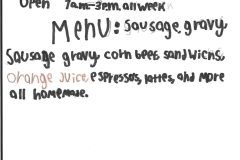 Open 7am-3pm, all week
Menu: Sausage gravy,
Sausage gravy, corn beef sandwichs,
Orange Juice, espressos, lattes, and more
all homemade.